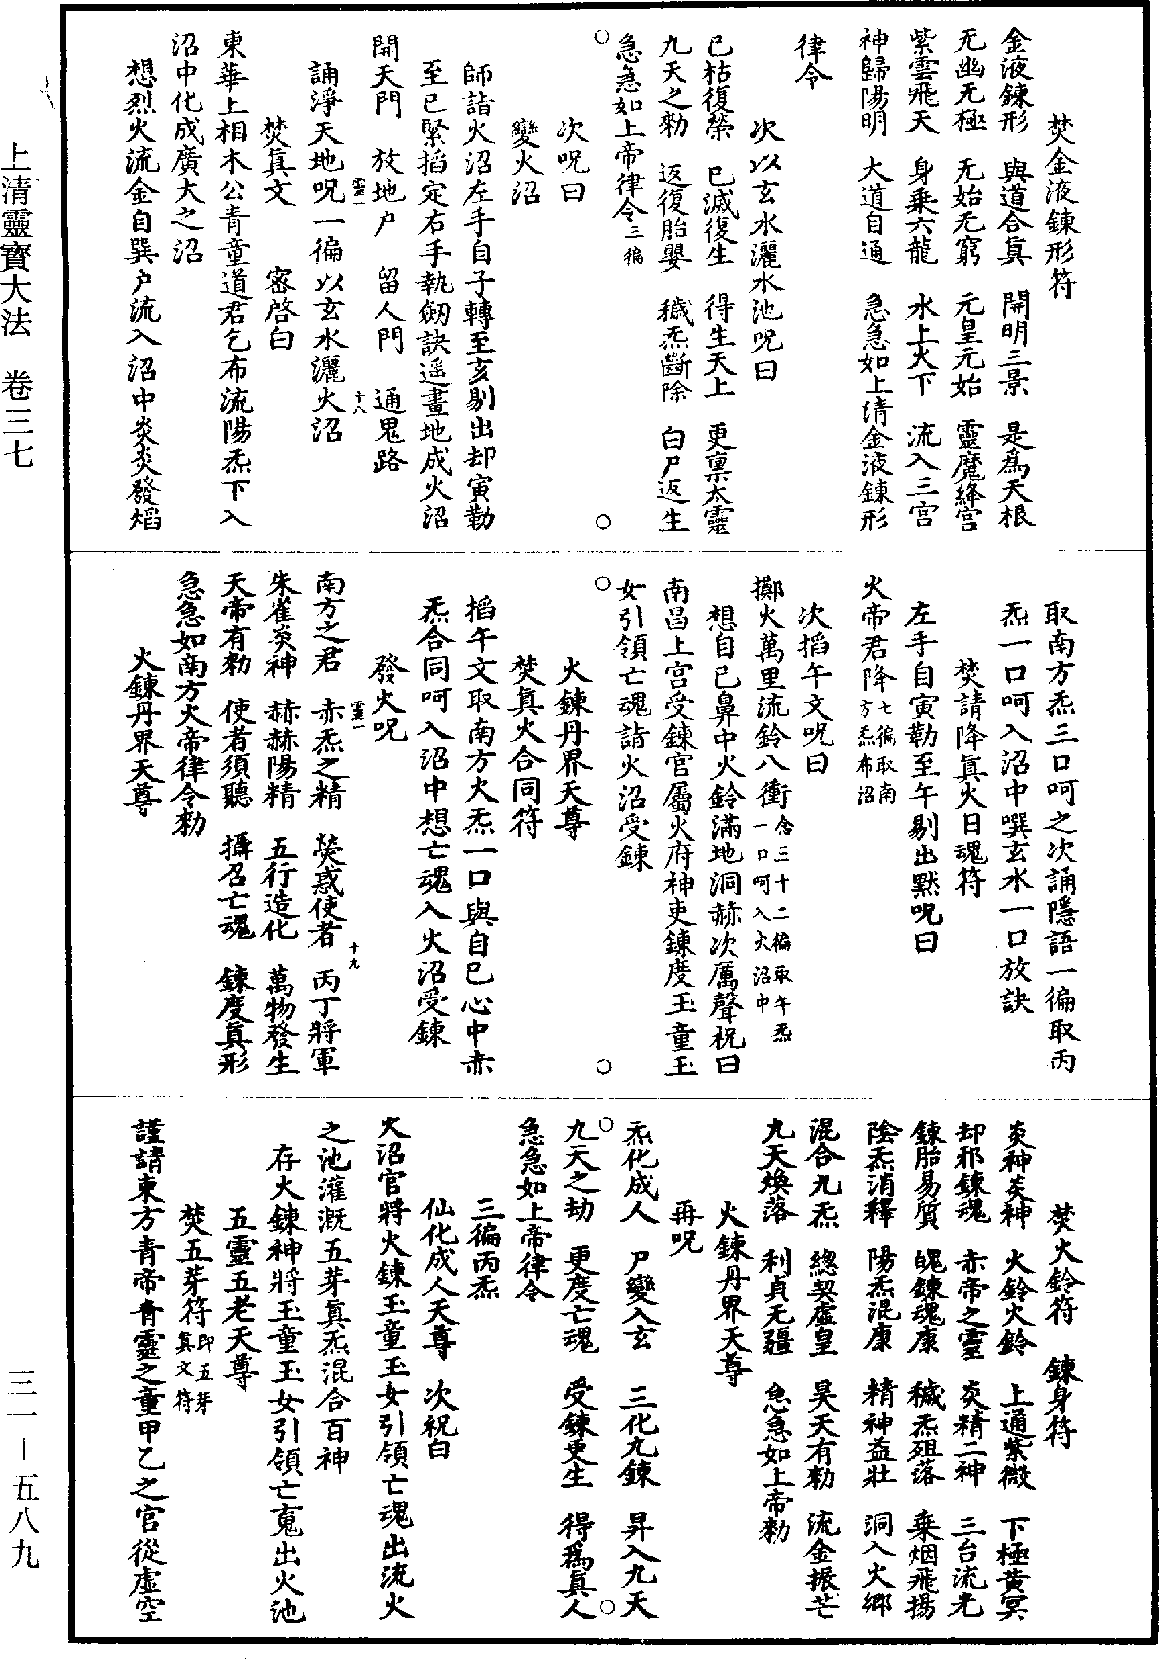 焚金液鍊形符
金液鍊形　與道合眞　開明三景　是爲天根
无幽无極　无始无窮　元皇元始　靈魔絳宫
紫雲飛天　身乗六龍　水上火下　流入三宫
神歸陽明　大道自通　急急如上清金液鍊形
律令
次以玄水灑水池呪曰
已枯復榮　已滅復生　得生天上　更禀太靈
九天之勑　返復胎嬰　穢炁斷除　白尸返生
急急如上帝律令三徧
○　○
次呪曰
變火沼
師詣火沼左手自子轉至亥剔出却寅勒
至巳緊掐定右手執劒訣遥畫地成火沼
開天門　放地户　留人門　通鬼路
靈一　十八
誦淨天地呪一徧以玄水灑火沼
焚眞文　密啓白
東華上相木公青童道君乞布流陽炁下入
沼中化成廣大之沼
想烈火流金自巽户流入沼中炎炎發熖
取南方炁三口呵之次誦隱語一徧取丙
炁一口呵入沼中噀玄水一口放訣
焚請降眞火日魂符
左手自寅勒至午剔出黙呪曰
火帝君降七徧取南方炁布沼
次掐午文呪曰
擲火萬里流鈴八衝念三十二徧取午炁一口呵入火沼中
想自已鼻中火鈴滿地洞赫次厲聲祝曰
南昌上宫受鍊官屬火府神吏鍊度玉童玉
女引領亡魂詣火沼受鍊
○　○
火鍊丹界天尊
焚眞火合同符
掐午文取南方火炁一口與自已心中赤
炁合同呵入沼中想亡魂入火沼受鍊
發火呪
靈一　十九
南方之君　赤炁之精　熒惑使者　丙丁將軍
朱雀炎神　赫赫陽精　五行造化　萬物發生
天帝有勑　使者須聽　攝召亡魂　鍊度眞形
急急如南方火帝律令勑
火鍊丹界天尊
焚火鈴符　鍊身符
炎神炎神　火鈴火鈴　上通紫微　下極黄冥
却邪鍊魂　赤帝之靈　炎精二神　三台流光
鍊胎易質　魄鍊魂康　穢炁殂落　乗烟飛揚
陰炁消釋　陽炁混康　精神益壯　洞入火鄉
混合九炁　總契虚皇　昊天有勑　流金振芒
九天焕落　利貞无疆　急急如上帝勑
火鍊丹界天尊
再呪
炁化成人　尸變入玄　三化九鍊　昇入九天
○　○
九天之劫　更度亡魂　受鍊更生　得爲眞人
急急如上帝律令
三徧丙炁
仙化成人天尊　次祝白
火沼官將火鍊玉童玉女引領亡魂出流火
之池灌溉五芽眞炁混合百神
存火鍊神將玉童玉女引領亡䰟出火池
五靈五老天尊
焚五芽符即五芽眞文符
謹請東方青帝青靈之童甲乙之官從虚空
上清靈寶大法　卷三七
三一—五八九